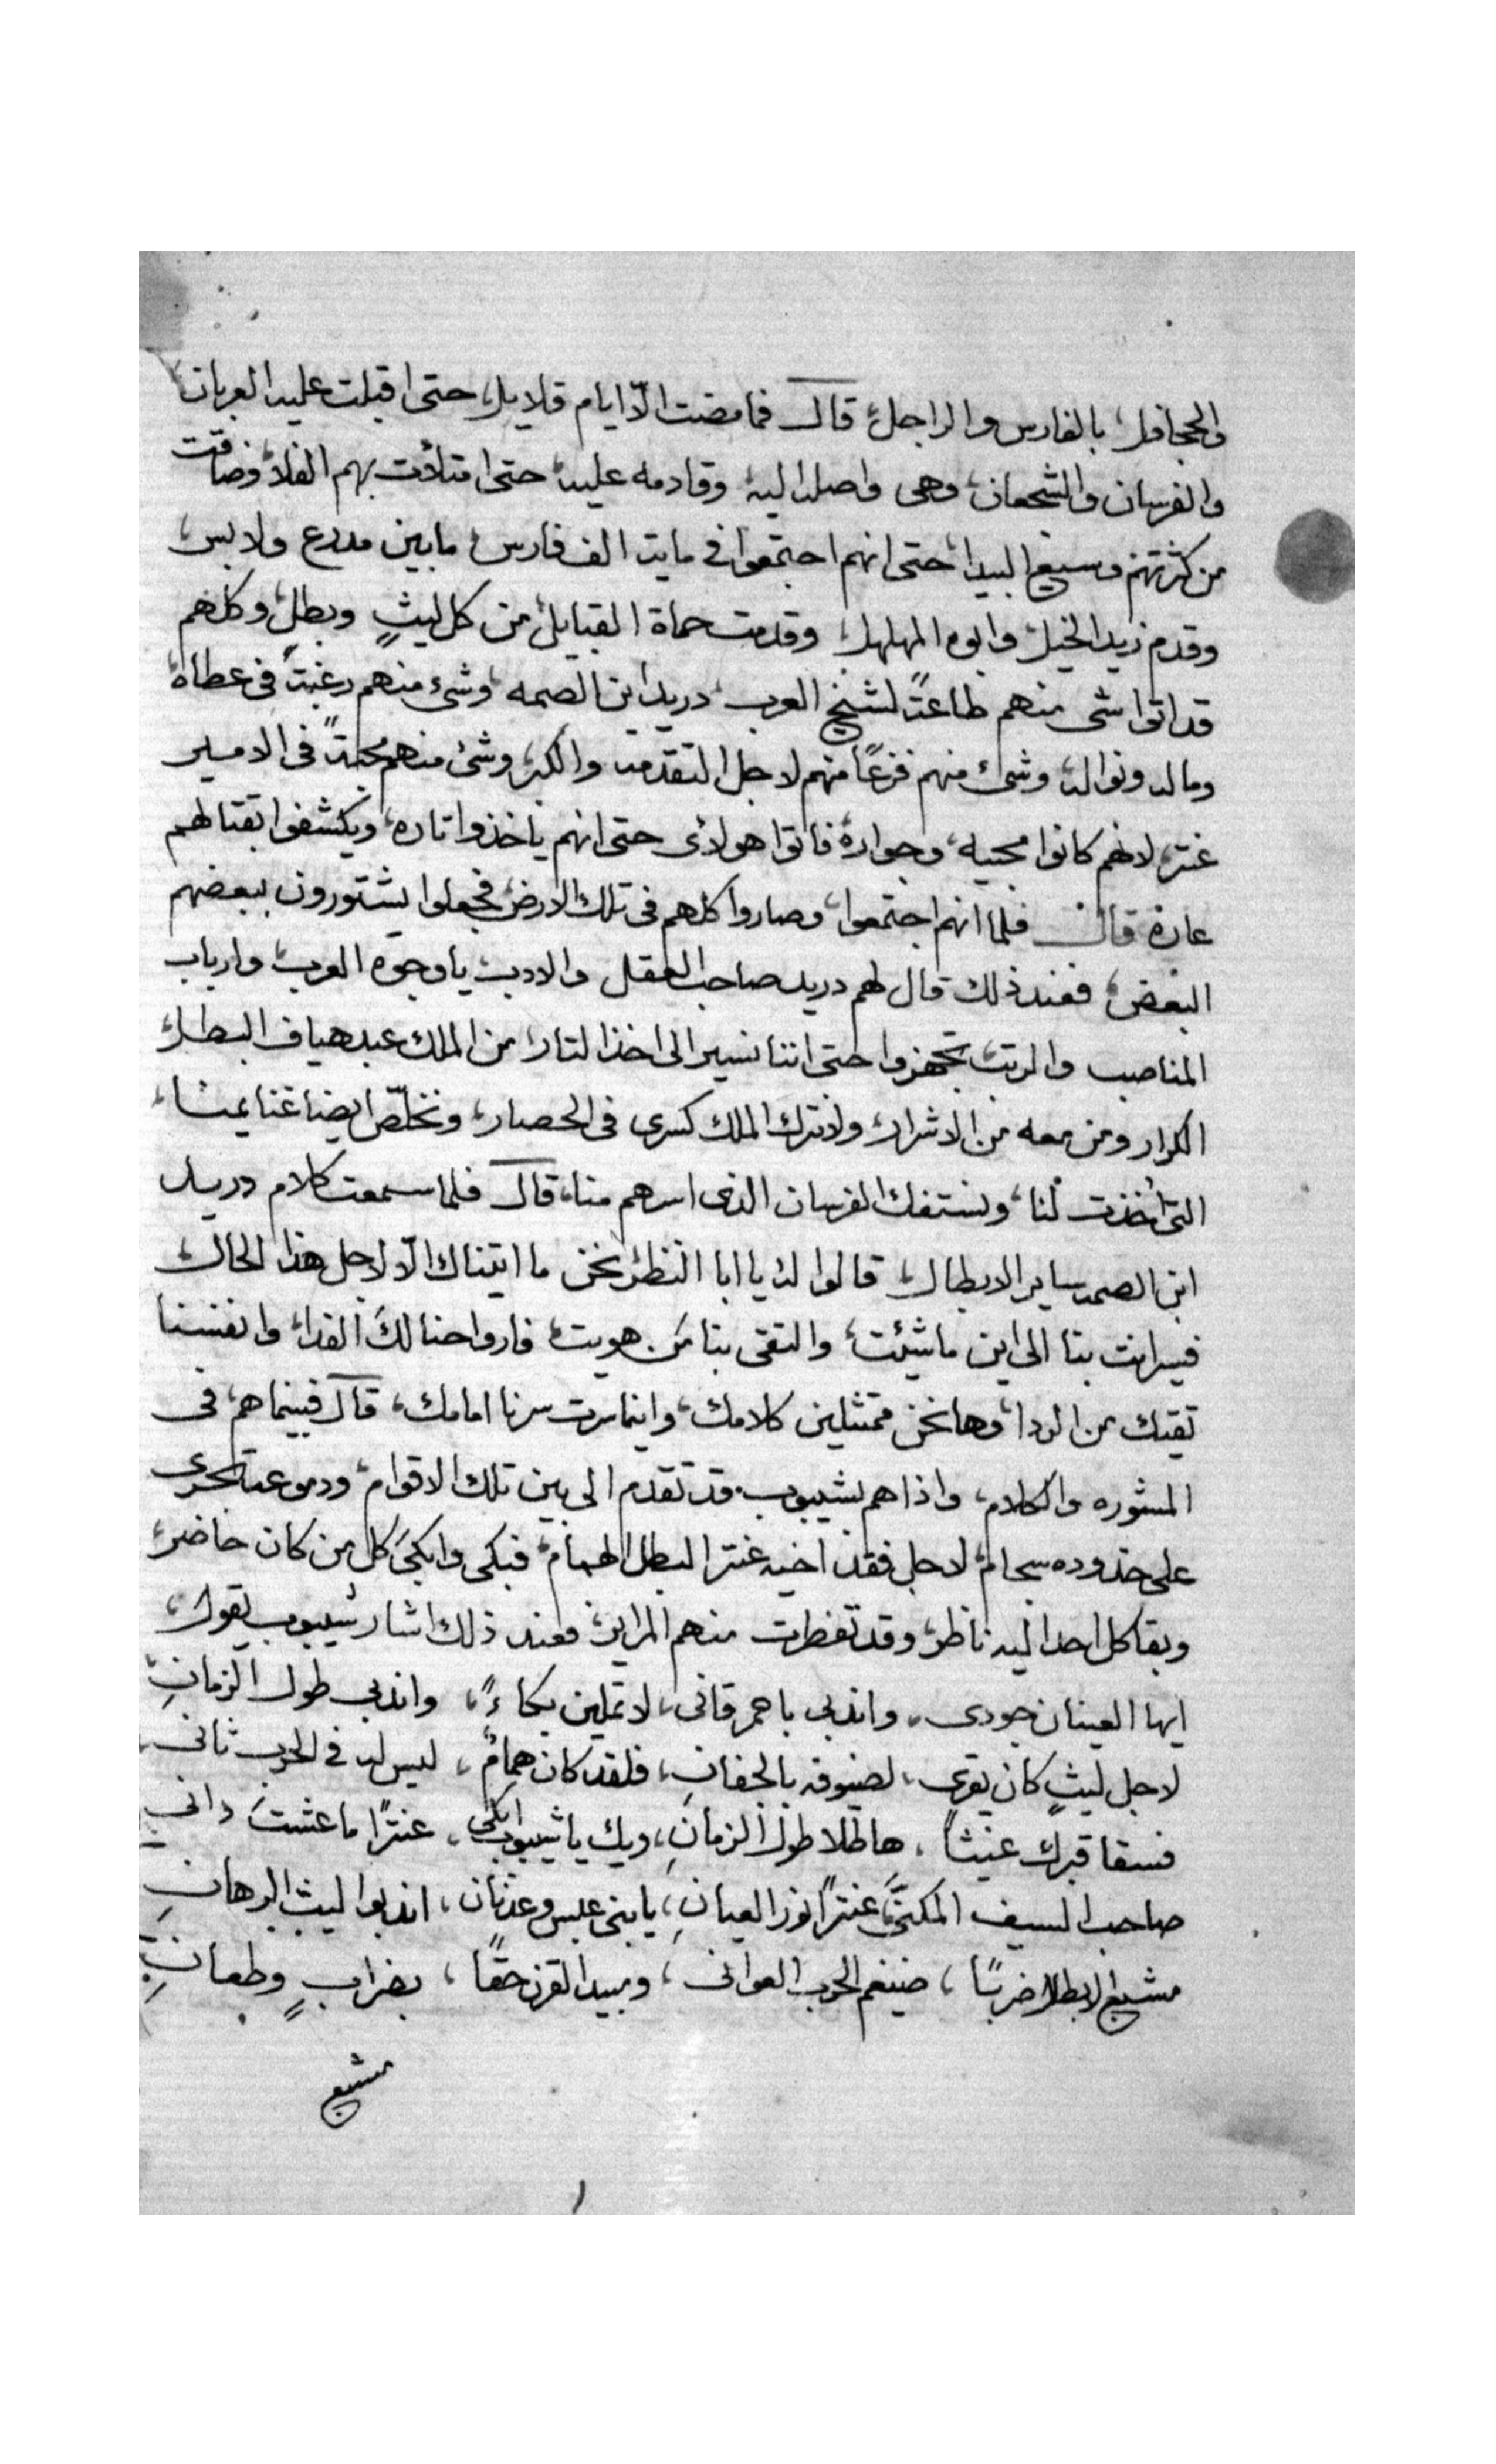 والجحافل، بالفارس والراجل، قال فما مضت الّا ايام قلايل، حتى اقبلت عليه العربان
والفرسان والشجعان، وهى واصله اليه، وقادمه عليه، حتى امتلأت بهم الفلا، وضاقت
من كثرتهم وسيع البيدا، حتى انهم اجتمعوا فى مايت الف فارس، ما بين مدرع ولابس،
وقدم زيد الخيل، وابوه المهلهل، وقدمت حماة القبايل، من كل ليثٍ وبطلٍ، وكلهم
قد اتوا شى منهم طاعتًا لشيخ العرب، دريد ابن الصمه، وشىء منهم رغبتًا فى عطاه،
وماله ونواله، وشىء منهم فزعًا منهم لاجل التقدمه والكبر، وشىء منهم محبتًا فى الامير
عنتر، لانهم كانوا محبيه، وجواره، فاتوا هولاى حتى انهم ياخذوا تاره، ويكشفوا بقتالهم
عاره، قال فلما انهم اجتمعوا، وصاروا كلهم فى تلك الارض، فجعلوا يشتورون ببعضهم
البعض، فعند ذلك قال لهم دريد صاحب العقل والادب، يا وجوه العرب، وارباب
المناصب والرتب، تجهزوا حتى اننا نسير الى اخذ التار، من الملك عبد هياف البطل،
الكرار ومن معه من الاشرار، ولانترك الملك كسرى فى الحصار، ونخلّص ايضا غنايمنا،
التى أُخذت لنا، ونستفك الفرسان الذى اسرهم منا، قال فلما سمعت كلام دريد
ابن الصمه ساير الابطال، قالوا له يا ابا النظر، نحن ما اتيناك الّا لاجل هذا الحال،
فسير انت بنا الى اين ما شئت، والتقى بنا من هويت، فارواحنا لك الفدا، وانفسنا
تقيك من الردا، وها نحن ممتثلين كلامك، واينما سرت سرنا امامك، قال فبينما هم، فى
المشوره والكلام، واذا هم بشيبوب، قد تقدم الى بين تلك الاقوام، ودموعه تجرى
على خدوده سجام، لاجل فقد اخيه عنتر البطل الهمام، فبكى وابكى كل من كان حاضر،
وبقا كل احدا ليه ناظر، وقد تفطرت منهم المراير، فعند ذلك اشار شيبوب يقول،
ايها العينان جودى، واندبى باحمر قانى، لا تملين بكاءً، واندبى طول الزمانِ،
لاجل ليثٍ كان يقرى، لضيوفه بالجفانِ، فلقد كان همامٌ، ليس له فى الحرب ثانى،
فسقا قبرك غيثًا، هاطلا طول الزمانِ، ويك يا شيبوب ابكى، عنترًا ما عشت دانى
صاحب السيف المكنّى، عنترًا نور العيانِ، يا بنى عبس وعدنان، اندبوا ليث الرهانِ
مشبع الابطال ضربًا، ضيغم الحرب العوانى، ومبيد القرن حقًا، بضرابٍ وطعانِ،
مشبع